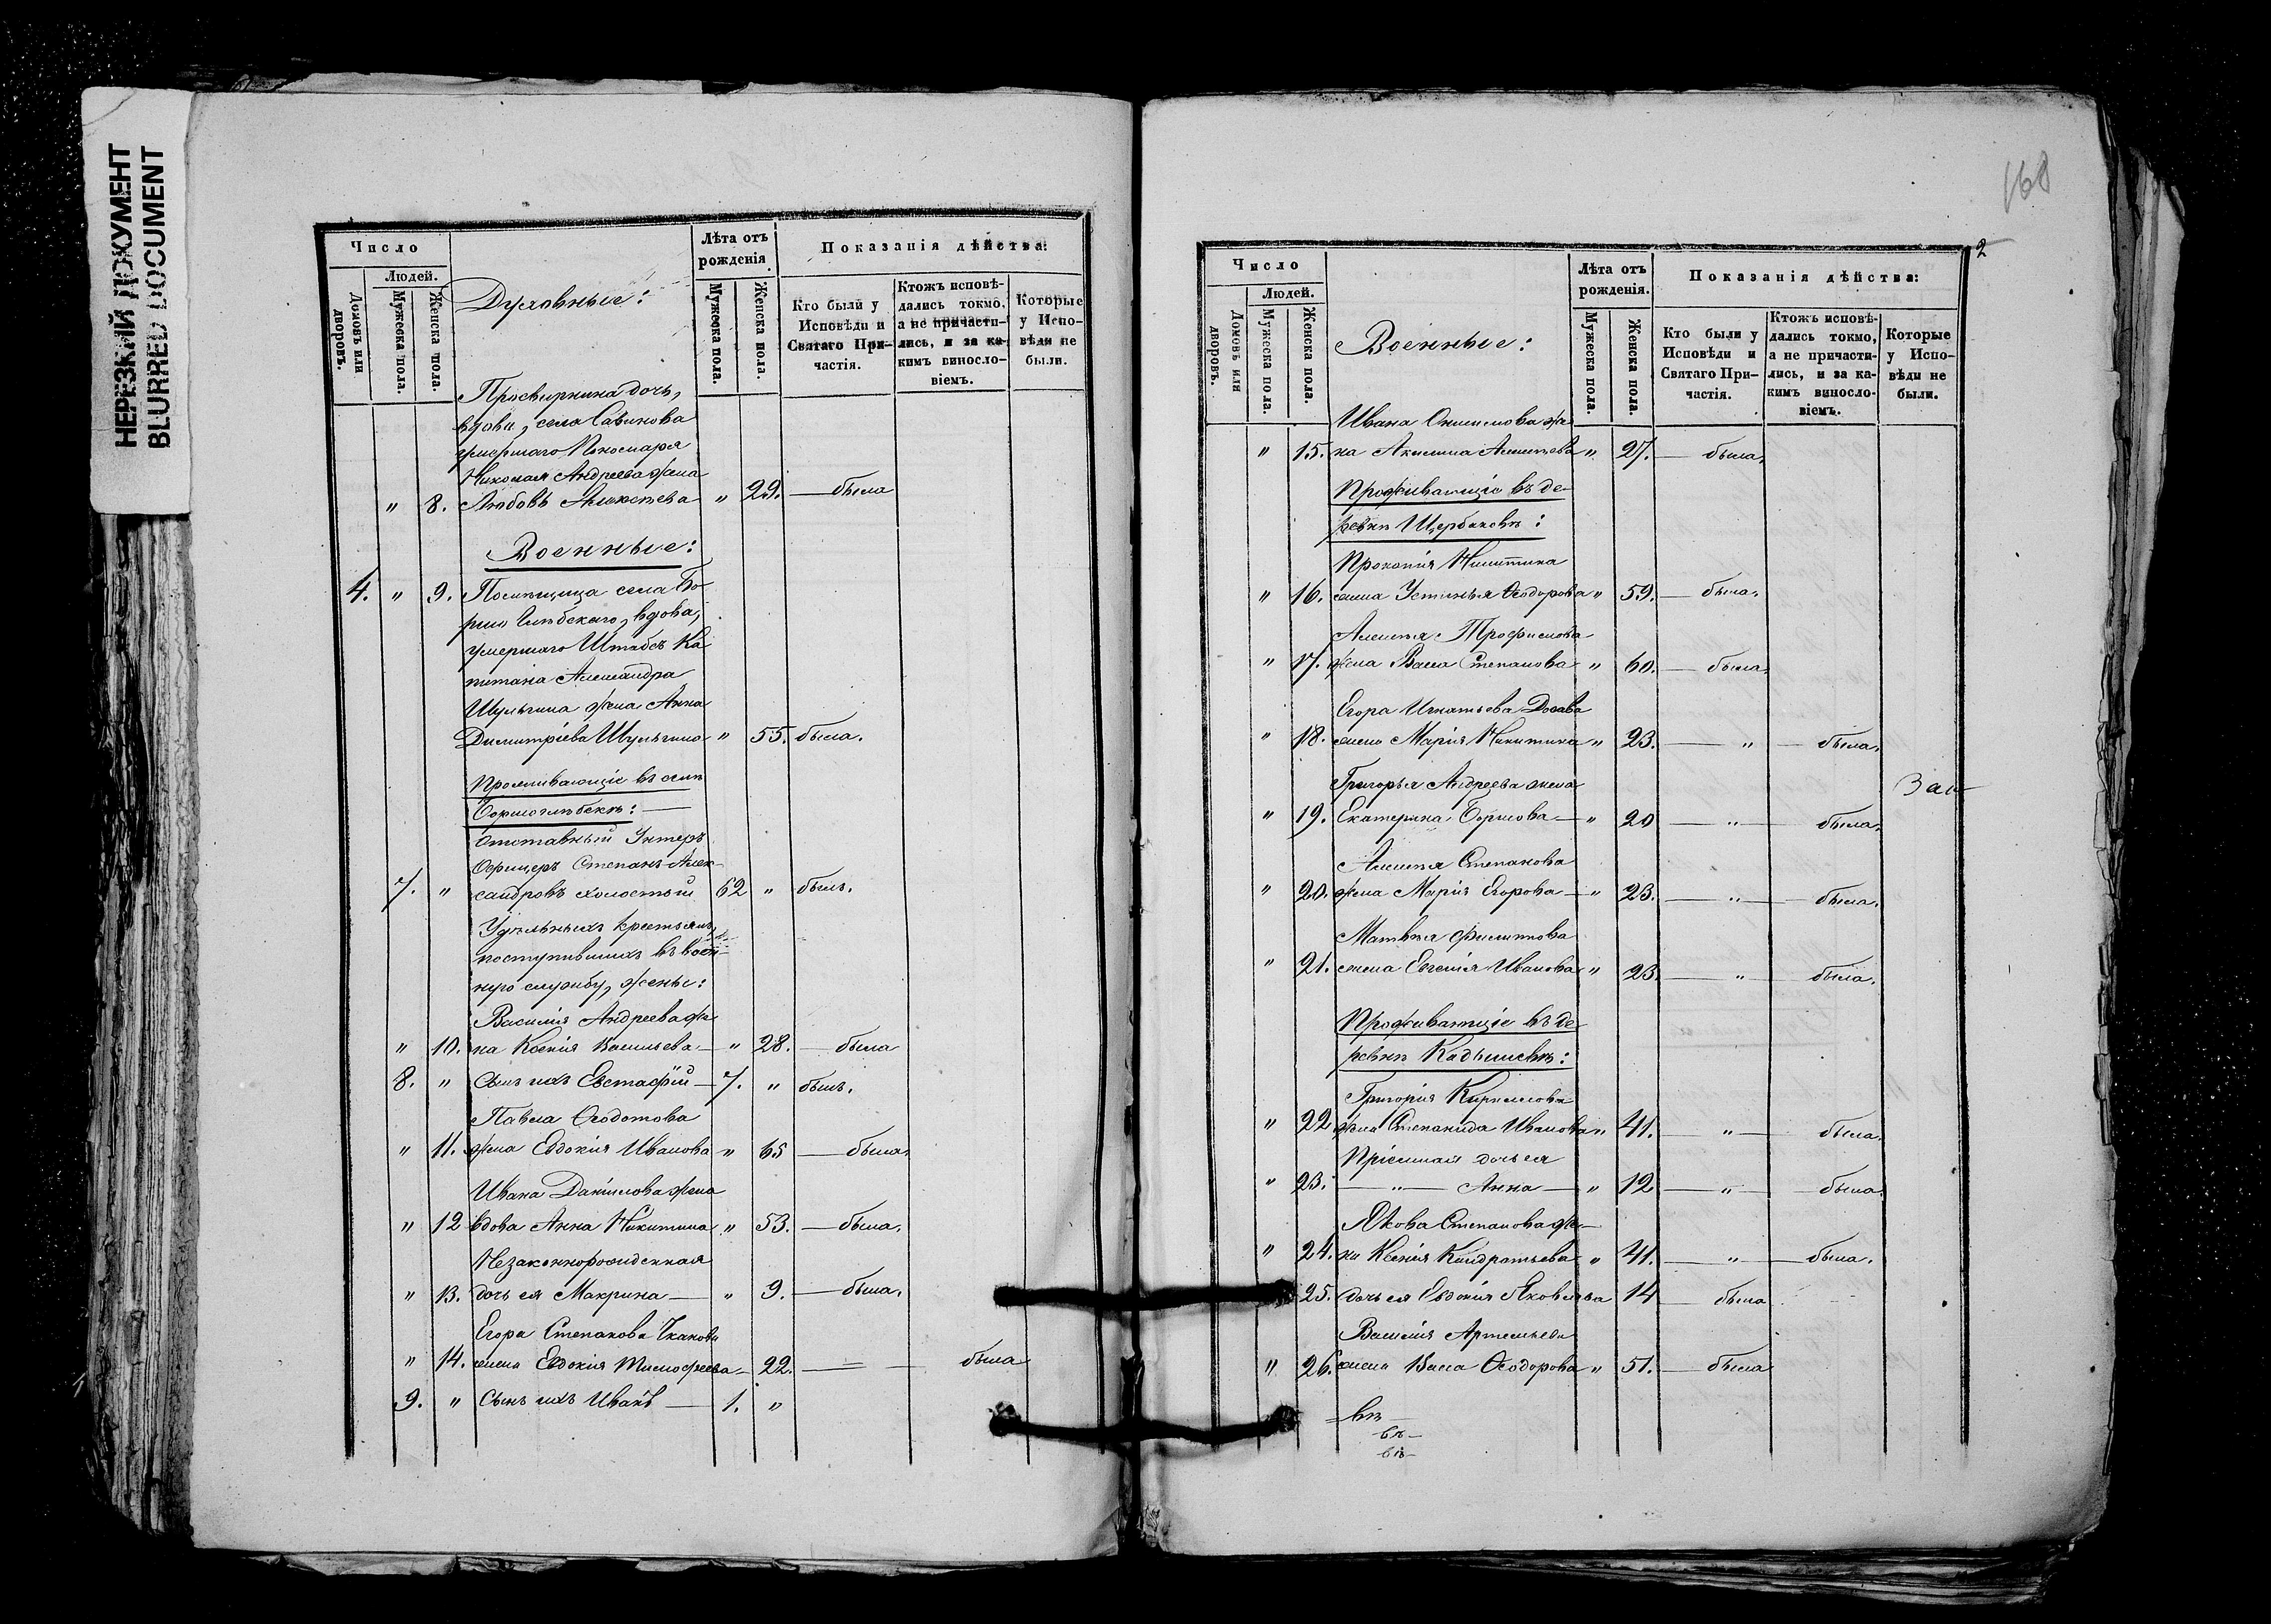 НЕРЕЗКИЙ ДОКУМЕНТ
BLURRED DOCUMENT
Число
Людей.
Домовъ или дворовъ.
Мужеска пола.
Женска пола.
Духовные:
Лѣта отъ рожденія
Мужеска пола.
Женска пола.
Показанія дѣйства:
Кто были у Исповѣди и Святаго Причастія.
Ктожъ исповѣдались токмо, а не причастились, и за какимъ винословіемъ.
Которые у Исповѣди не были.
Просвирнина дочь,
вдова, села Савинова
умершаго Пономаря
Николая Андреева жена
" 8. Любовь Алексѣева " 29. — была
Военные:
4. " 9. Помѣщица села Бо-
умершаго Штабсъ Ка
питана Александра
Шульгина жена Анна
Димитріева Шульгина " 55. была.
Проживающіе въ селѣ
Отставный Унтеръ
Офицеръ Степанъ Алек-
7. " сандровъ холостый 62 " былъ.
Удѣльныхъ крестьянъ,
поступившихъ въ воен-
ную службу, жены:
Василія Андреева же
" 10. на Ксенія Васильева — " 28. — была
8. " Сынъ ихъ Евстафій — 7. " былъ.
Павла Ѳеодотова
" 11. жена Евдокія Иванова " 65 — была.
Ивана Данилова жена
" 12 вдова Анна Никитина " 53. — была.
Незаконнорожденная
" 13. дочь ея Макрина — " 9. — была.
Егора Степанова
" 14. жена Евдокія Тимофеева — 22. — " — была
9. " Сынъ ихъ Иванъ — 1. "
168
2
Число
Людей.
Домовъ или дворовъ.
Мужеска пола.
Женска пола.
Военные:
Лѣта отъ рожденія.
Мужеска пола.
Женска пола.
Показанія дѣйства:
Кто были у Исповѣди и Святаго Причастія.
Ктожъ исповѣдались токмо, а не причастились, и за какимъ винословіемъ.
Которые у Исповѣди не были.
Ивана Онисимова же
" 15. на Акилина Алексѣева " 27. — была.
Проживающіе въ де-
ревнѣ Щербаковѣ:
Прокопія Никитина
" 16. жена Устинья Ѳеодорова " 59. — была.
Алексѣя Трофимова
" 17. жена Васса Степанова " 60. — была.
Егора Игнатьева
" 18. жена Марія Никитина " 23. — " — была.
Григорья Андреева жена
" 19. Екатерина Борисова — " 20 — " — была.
Зап
Алексѣя Степанова
" 20. жена Марія Егорова — " 23. — " — была.
Матвѣя Филиппова
" 21. жена Евгенія Иванова " 23. — " — была.
Проживающіе въ де-
ревнѣ Кадышевѣ:
Григорія Кириллова
" 22. жена Степанида Иванова " 41. — " — была.
Пріемная дочь ея
" 23. — " — Анна — " 12 — " — была.
Якова Степанова же-
" 24. на Ксенія Кондратьева " 41. — " — была.
25. дочь ея Евдокія Яковлева 14 — была
Василія Артемьева
" 26. жена Васса Ѳеодорова " 51. — была
вѣ
вѣ
вѣ